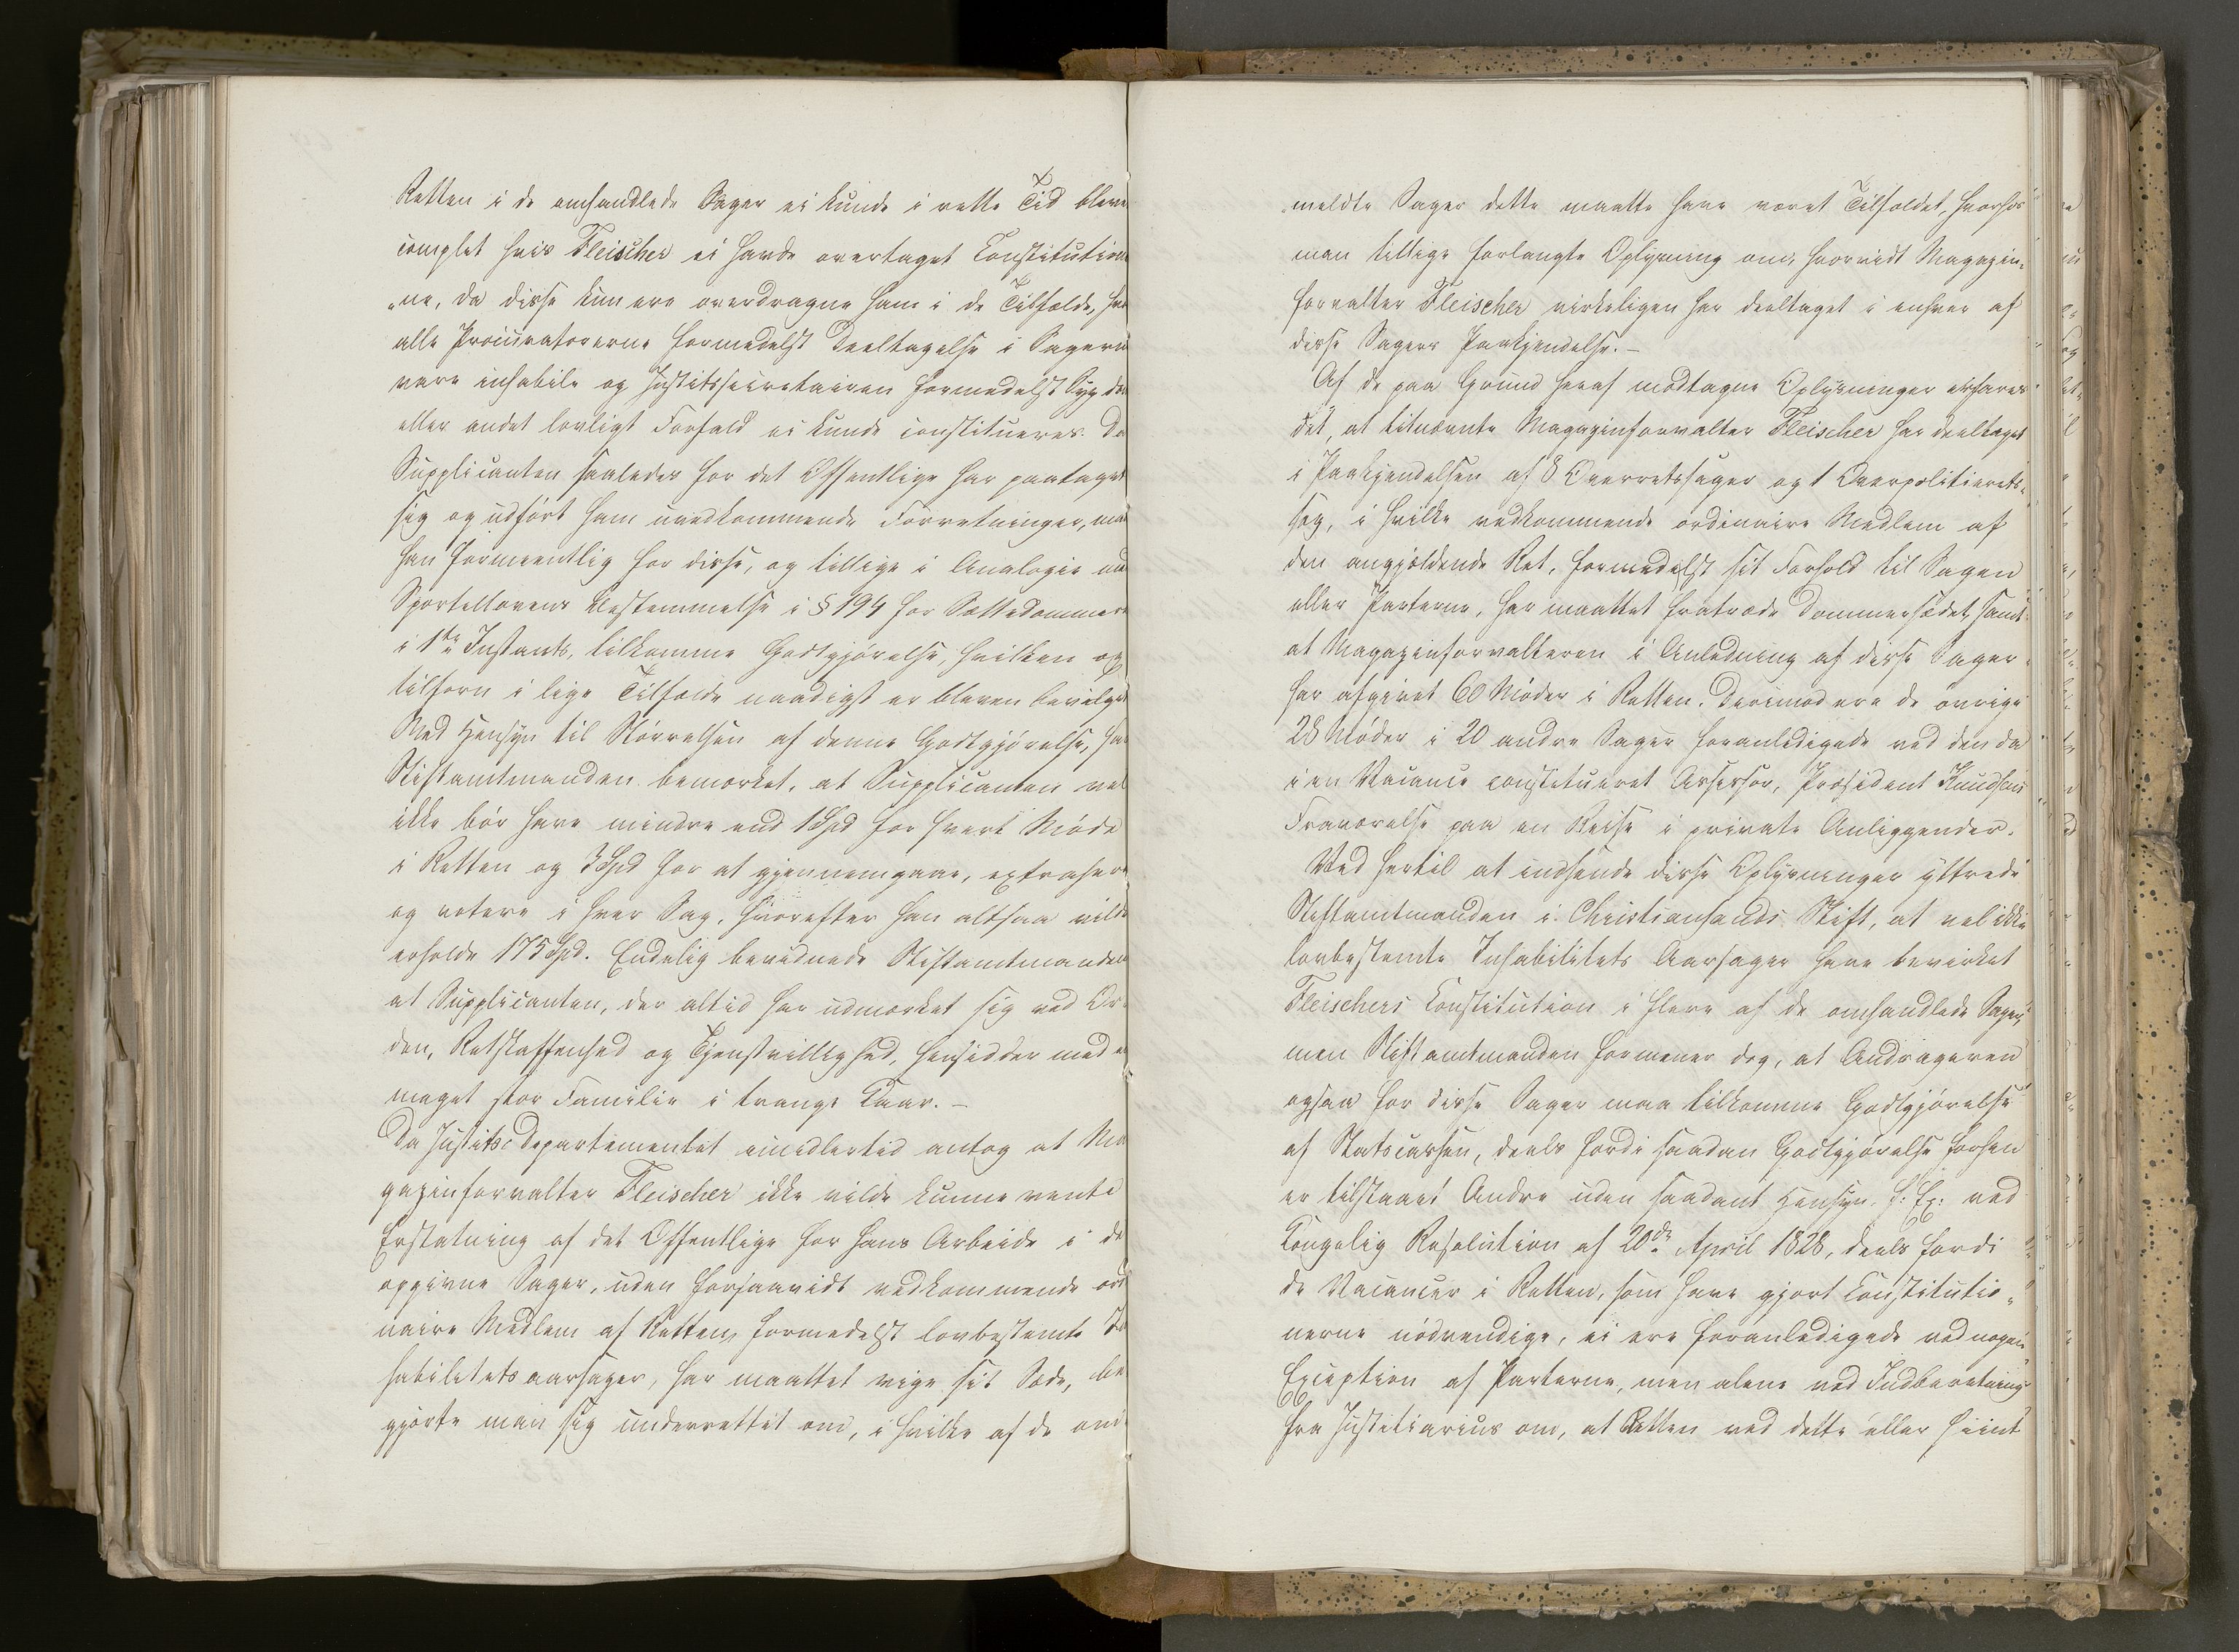 Retten i de omhandlede Sager ei kunde i rette Tid bleve
complet hvis Fleischer ei havde overtaget Constitution
„ne, da disse kun ere overdragne ham i de Tilfælde, hvor
alle Procuratorerne formedelst Deeltagelse i Sagerne
vare inhabile og Justitssecretairen formedelst Sygdom
eller andet lovligt Forfald ei kunde constitueres. Da
Supplicanten saaledes for det Offentlige har paataget
sig og udført ham uvedkommende Forretninger, maa
han formeentlig for disse, og tillige i Analogie med
Sportellovens Bestemmelse i § 194 for Sættedommere
i 1ste Instants, tilkomme Godtgjørelse, hvilken og
tilforn i lige Tilfælde naadigst er bleven bevilget
Med Hensyn til Størrelsen af denne Godtgjørelse, har
Stiftamtmanden bemærket, at Supplicanten vel
ikke bør have mindre end 1 Spd for hvert Møde
i Retten og 3 Spd for at gjennemgaae, extrahere
og votere i hver Sag, hvorefter han altsaa vilde
erholde 175 Spd. Endelig bevidnede Stiftamtmanden
at Supplicanten, der altid har udmærket sig ved Or-
den, Retskaffenhed og Tjenstvillighed, hensidder med en
meget stor Familie i trange Kaar. –
Da Justits-Departementet imidlertid antog at Ma
gazinforvalter Fleischer ikke vilde kunne vente
Erstatning af det Offentlige for hans Arbeide i de
opgivne Sager, uden forsaavidt vedkommende ordi
naire Medlem af Retten, formedelst lovbestemte In
habilitetsaarsager, har maattet vige sit Sæde, be
gjærte man sig underrettet om, i hvilke af de om
„meldte Sager dette maatte have været Tilfældet, hvorhos
man tillige forlangte Oplysning om, hvorvidt Magazin-
forvalter Fleischer virkeligen har deeltaget i enhver af
disse Sagers Paakjendelse. –
Af de paa Grund heraf modtagne Oplysninger erfares
det, at bitnævnte Magazinforvalter Fleischer har deeltaget
i Paakjendelsen af 8 Overretssager og 1 Overpolitierets-
sag, i hvilke vedkommende ordinaire Medlem af
den angjældende Ret, formedelst sit Forhold til Sagen
eller Parterne, har maattet fratræde Dommersædet, samt
at Magazinforvalteren i Anledning af disse Sager
har afgivet 60 Møder i Retten. Derimod ere de øvrige
28 Møder i 20 andre Sager foranledigede ved den da
i en Vacance constitueret Assessor, Præsident Knudsens
Fraværelse paa en Reise i private Anliggender.
Ved hertil at indsende disse Oplysninger yttrede
Stiftamtmanden i Christiansands Stift, at vel ikke
lovbestemte Inhabilitets Aarsager have bevirket
Fleischers Constitution i flere af de omhandlede Sager,
men Stiftamtmanden formener dog, at Andrageren
ogsaa for disse Sager maa tilkomme Godtgjørelse
af Statscassen, deels fordi saadan Godtgjørelse forhen
er tilstaaet Andre uden saadant Hensyn, f: Ex: ved
Kongelig Resolution af 20de April 1828, deels fordi
de Vacancer i Retten, som have gjort Constitutio„
nerne nødvendige, ei ere foranledigede ved nogen
Exception af Parterne, men alene ved Indberetning
fra Justitiarius om, at Retten ved dette eller hiint